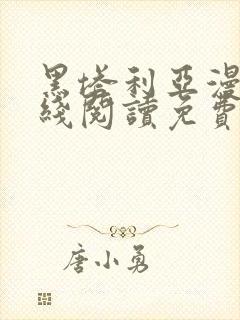 黑塔利亞漫
綫閱讀免費
唐小勇